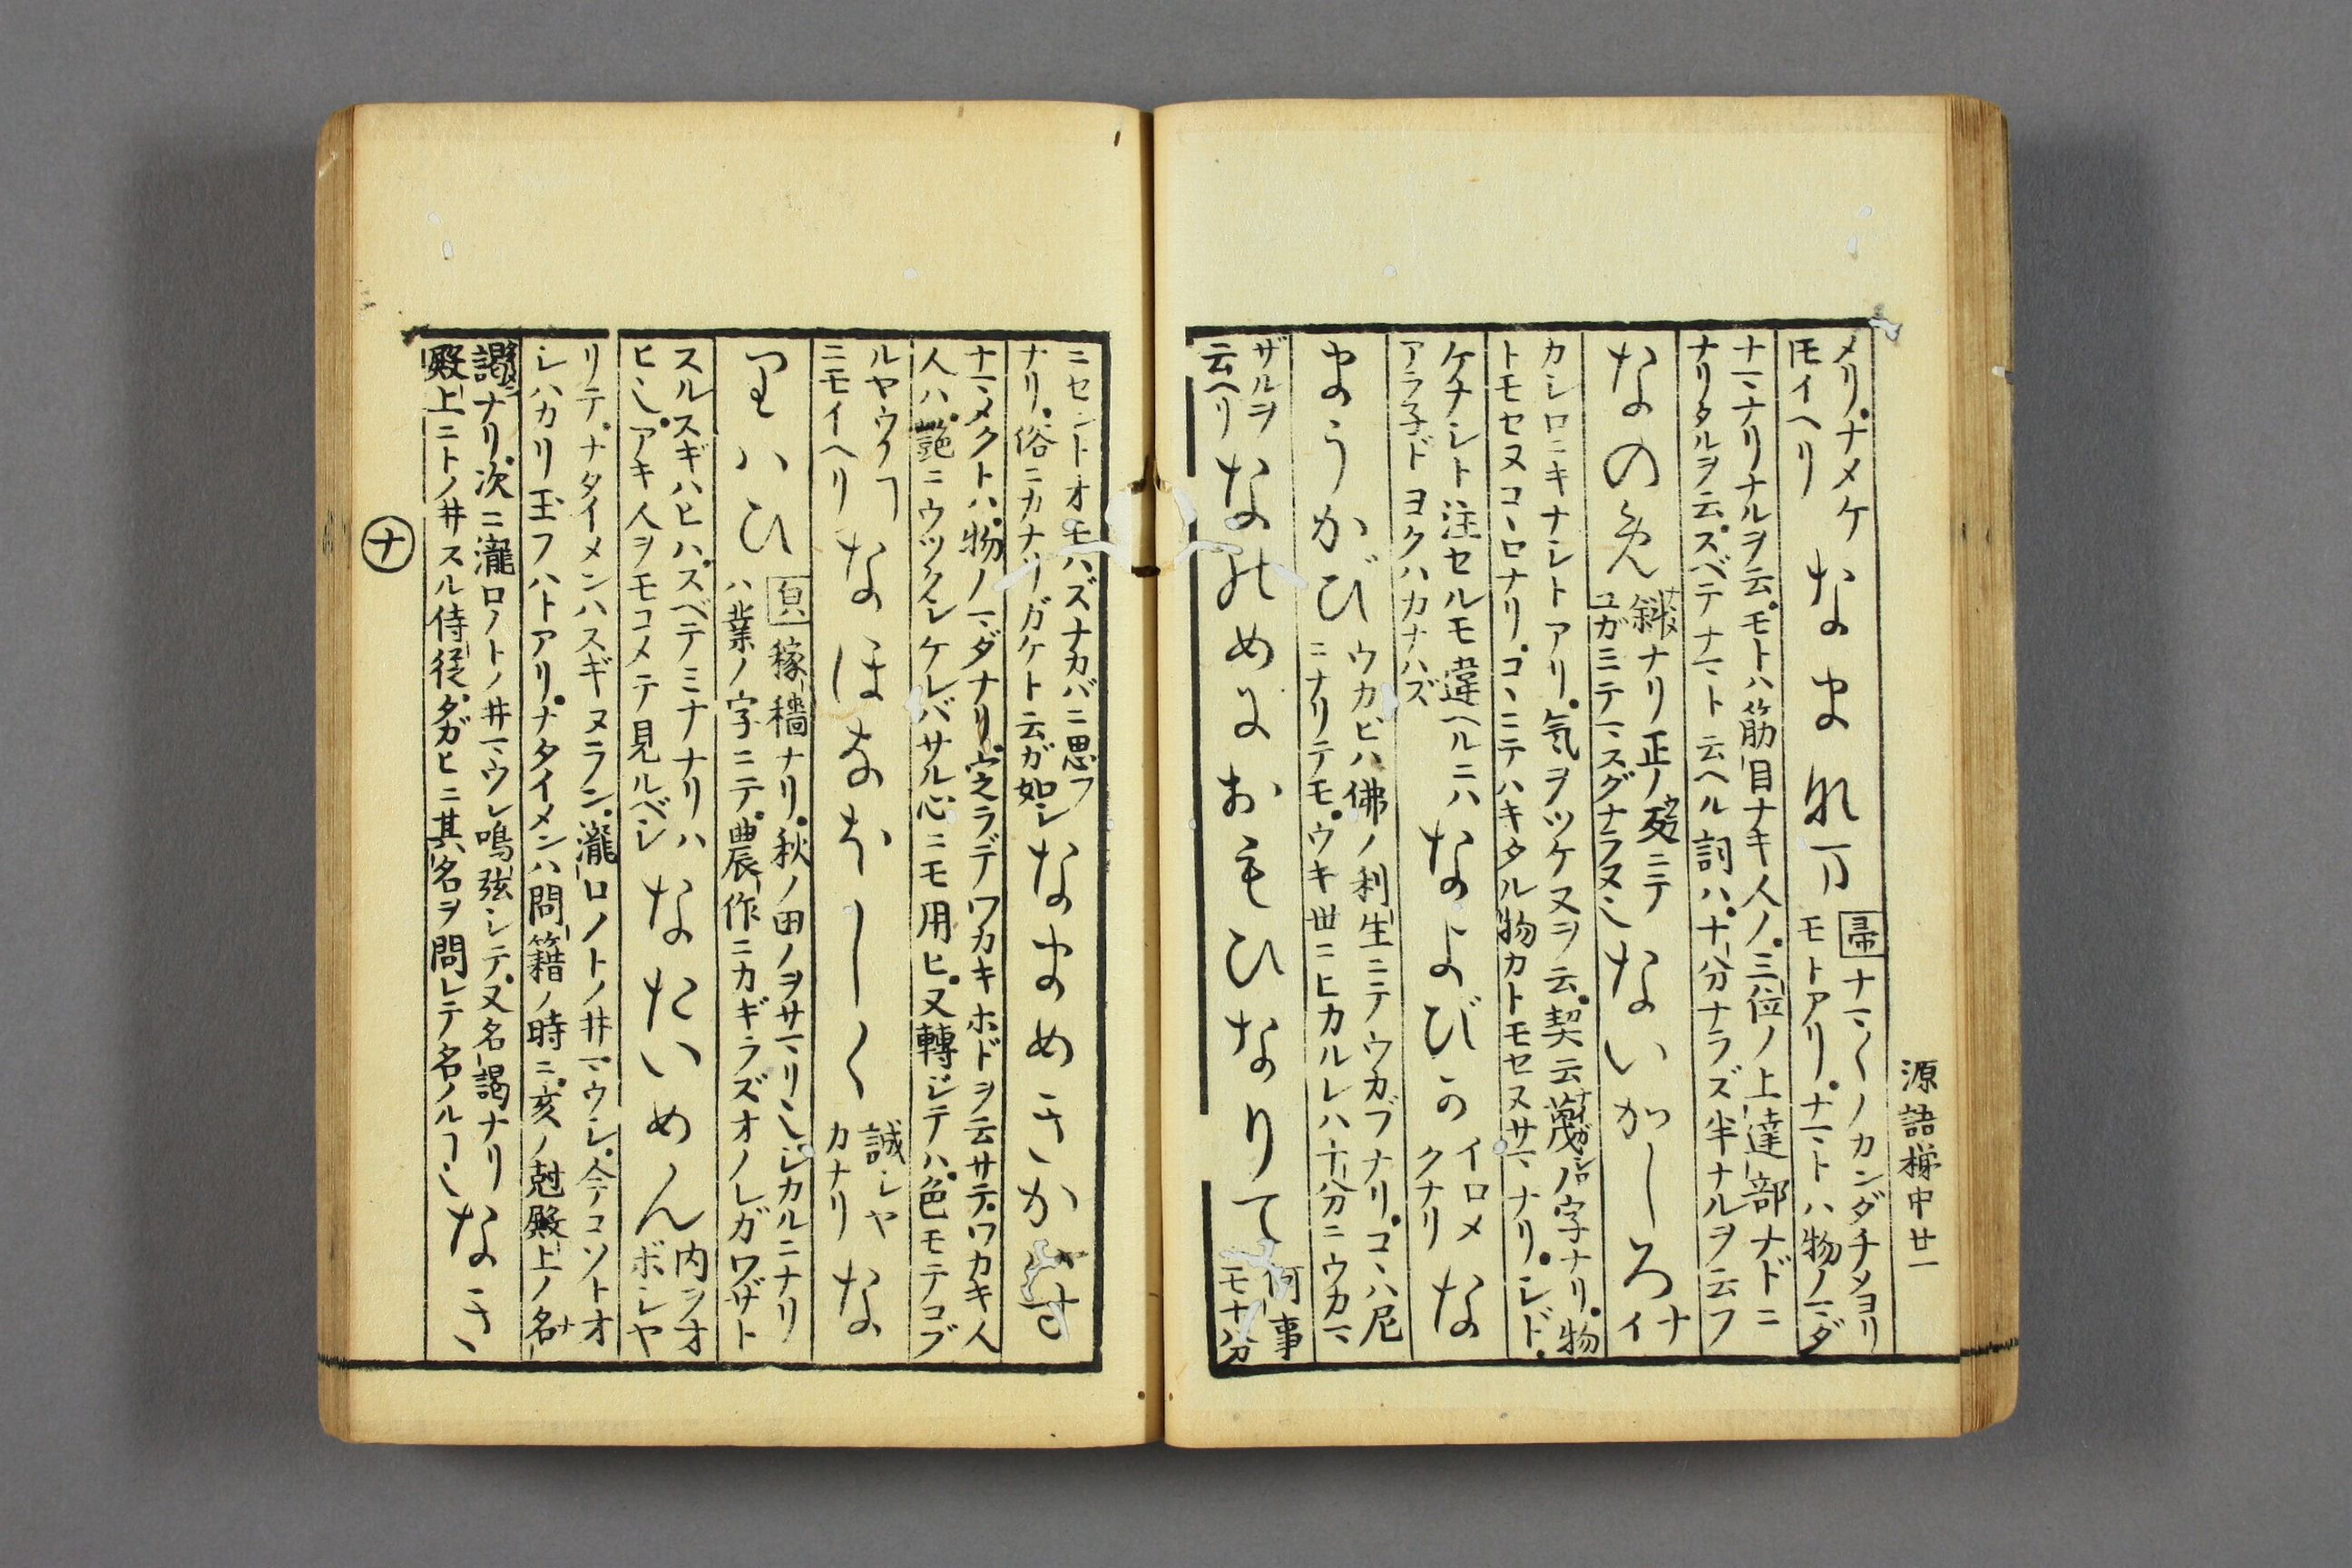 源語梯中廿一
メリ。ナメケ
モイヘリ
なま〳〵
帚 ナマ〳〵ノカンダチメヨリ
モトアリ。ナマトハ物ノマダ
ナマナリナルヲ云。モトハ筋目ナキ人ノ。三位ノ上達部ナドニ
ナリタルヲ云。スベテナマト云ヘル詞ハ。十分ナラズ半ナルヲ云フ
なのめ
斜ナリ正ノ反ニテ
ユガミテマスグナラヌ也
ないがしろ
ナイ
カシロニキナシトアリ。気ヲツケヌヲ云。契云蔑ノ字ナリ。物
トモセヌコヽロナリ。コヽニテハキタル物カトモセヌサマナリ。シド
ケナシト注セルモ違ヘルニハ
アラ子ドヨクハカナハズ
なよびか
イロメ
クナリ
な
まうかび
ウカビハ佛ノ利生ニテウカブナリ。コヽハ尼
ニナリテモ。ウキ世ニヒカルレハ十分ニウカマ
ザルヲ
云ヘリ
なのめにおもひなりて
何事
モ十分
ニセントオモハズナカバニ思フ
ナリ。俗ニカナリガケト云ガ如シ
なまめきかはす
ナマメクトハ。物ノマダナリ定ラデワカキホドヲ云サテ。ワカキ人
人ハ。艶ニウツクシケレバサル心ニモ用ヒ。又轉ジテハ。色モテコブ
ルヤウノ
ニモイヘリ
なほなほし〳〵
誠シヤ
カナリ
な
りはひ
頁 稼穡ナリ。秋ノ田ノヲサマリ也シカルニナリ
ハ業ノ字ニテ。農作ニカギラズオノレガワザト
スルスギハヒハ。スベテミナナリハ
ヒ也。アキ人ヲモコメテ見ルベシ
なたいめん
内ヲオ
ボシヤ
リテ。ナタイメンハスギヌラン。瀧口ノトノ井マウシ。今コソトオ
シハカリ玉フハトアリ。ナタイメンハ問籍ノ時ニ。亥ノ尅殿上ノ名
謁ナリ。次ニ瀧口ノトノ井マウシ鳴弦シテ。又名謁ナリ
殿上ニトノ井スル侍従。タガヒニ其名ヲ問レテ名ノルヿ也
なき
ナ